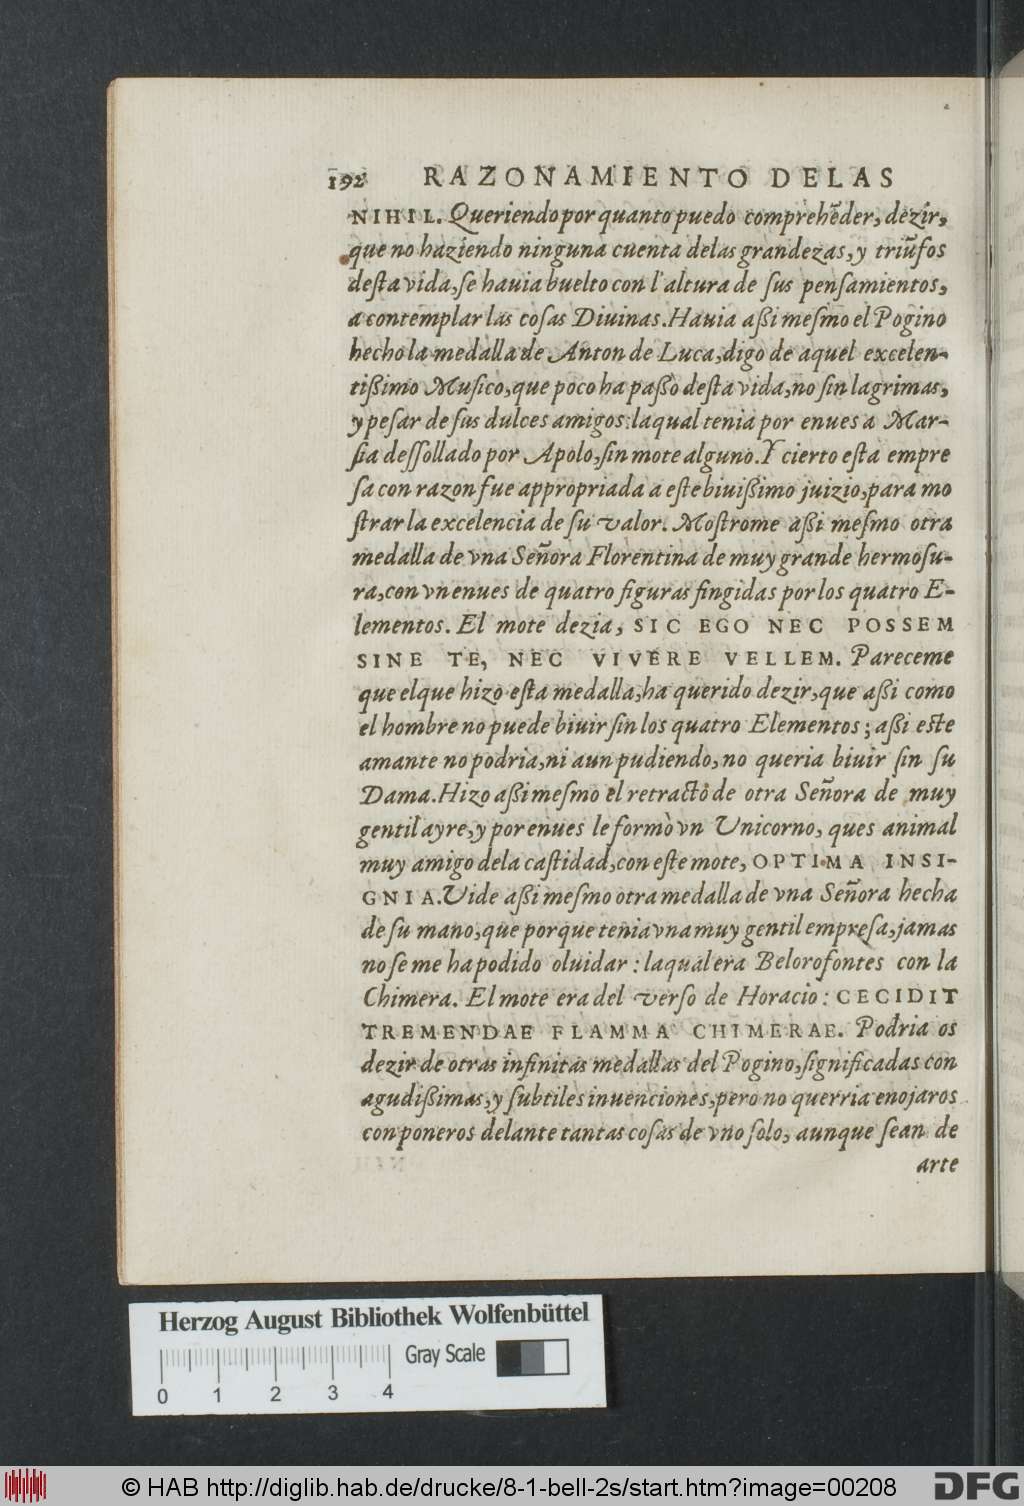 192 RAZONAMIENTO DELAS
NIHIL. Queriendo por quanto puedo comprehēder, dezir,
que no haziendo ninguna cuenta delas grandezas, y triūfos
desta vida, se hauia buelto con l'altura de sus pensamientos,
a contemplar las cosas Diuinas. Hauia aßi mesmo el Pogino
hecho la medalla de Anton de Luca, digo de aquel excelen-
tißimo Musico, que poco ha paßò desta vida, no sin lagrimas,
y pesar de sus dulces amigos: laqual tenia por enues a Mar-
sia dessollado por Apolo, sin mote alguno. Y cierto esta empre
sa con razon fue appropriada a este biuißimo juizio, para mo
strar la excelencia de su valor. Mostrome aßi mesmo otra
medalla de vna Señora Florentina de muy grande hermosu-
ra, con vn enues de quatro figuras fingidas por los quatro E-
lementos. El mote dezia, SIC EGO NEC POSSEM
SINE TE, NEC VIVERE VELLEM. Pareceme
que elque hizo esta medalla, ha querido dezir, que aßi como
el hombre no puede biuir sin los quatro Elementos; aßi este
amante no podria, ni aun pudiendo, no queria biuir sin su
Dama. Hizo aßi mesmo el retracto de otra Señora de muy
gentil ayre, y por enues le formò vn Unicorno, ques animal
muy amigo dela castidad, con este mote, OPTIMA INSI-
GNIA. Vide aßi mesmo otra medalla de vna Señora hecha
de su mano, que porque tenia vna muy gentil empresa, jamas
no se me ha podido oluidar: laqual era Belorofontes con la
Chimera. El mote era del verso de Horacio: CECIDIT
TREMENDAE FLAMMA CHIMERAE. Podria os
dezir de otras infinitas medallas del Pogino, significadas con
agudißimas, y subtiles inuenciones, pero no querria enojaros
con poneros delante tantas cosas de vno solo, aunque sean de
arte
Herzog August Bibliothek Wolfenbüttel
Gray Scale
0 1 2 3 4
© HAB http://diglib.hab.de/drucke/8-1-bell-2s/start.htm?image=00208
DFG